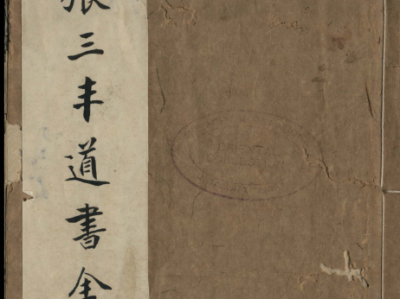 張三丰道書全